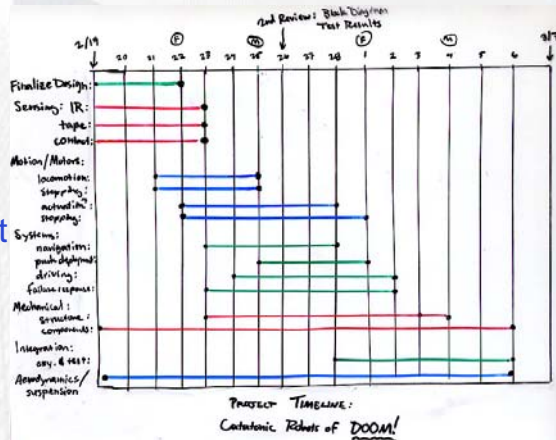 2nd Review: Block Diagram
Test Results
2/19 F M F M 3/7
20 21 22 23 24 25 26 27 28 1 2 3 4 5 6
Finalize Design:
Sensing: IR:
tape:
contact:
Motion/Motors:
locomotion:
stopping:
actuation:
stopping:
t
Systems:
navigation:
push deployment:
driving:
failure response:
Mechanical:
structure:
components:
Integration:
assy. & test:
Aerodynamics/
suspension
PROJECT TIMELINE:
Catatonic Robots of DOOM!